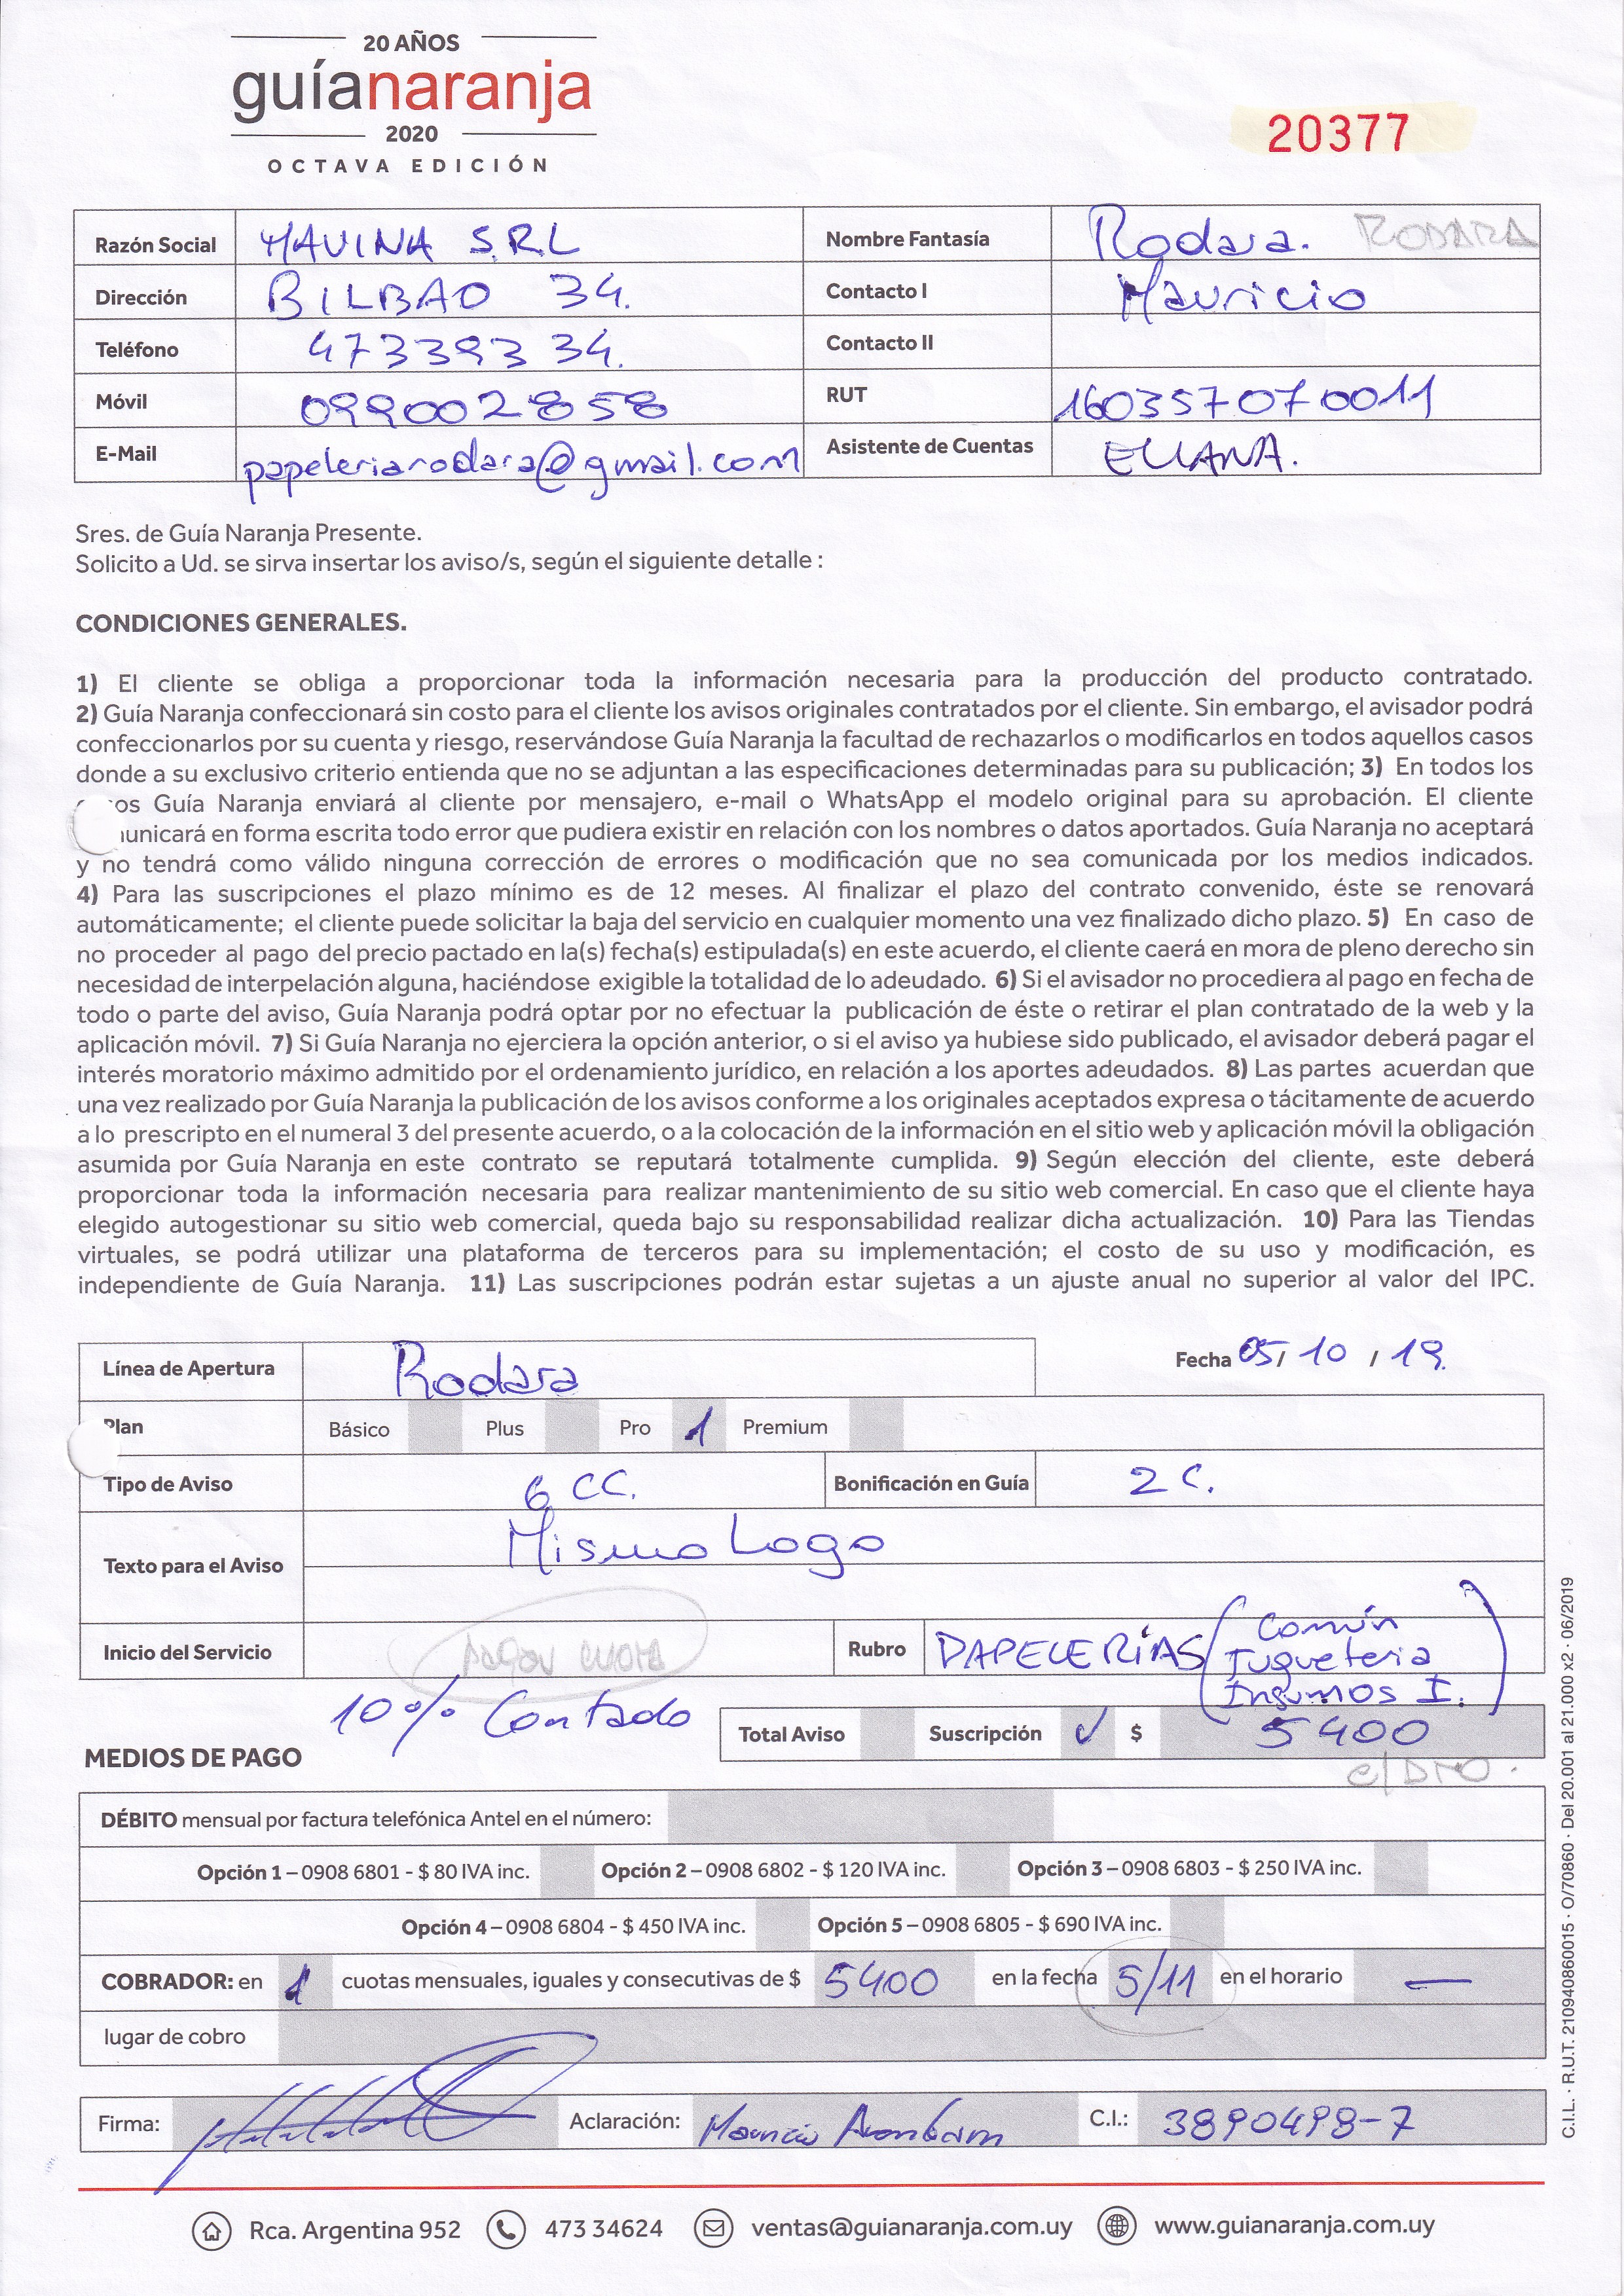 20 AÑOS
guíanaranja
2020
OCTAVA EDICIÓN
20377
Razón Social MAVINA S.R.L Nombre Fantasía Rodara. RODARA
Dirección BILBAO 34. Contacto I Mauricio
Teléfono 473393 34. Contacto II
Móvil 099002858 RUT 160357070011
E-Mail papeleriarodara@gmail.com Asistente de Cuentas ELIANA.
Sres. de Guía Naranja Presente.
Solicito a Ud. se sirva insertar los aviso/s, según el siguiente detalle :
CONDICIONES GENERALES.
1) El cliente se obliga a proporcionar toda la información necesaria para la producción del producto contratado.
2) Guía Naranja confeccionará sin costo para el cliente los avisos originales contratados por el cliente. Sin embargo, el avisador podrá
confeccionarlos por su cuenta y riesgo, reservándose Guía Naranja la facultad de rechazarlos o modificarlos en todos aquellos casos
donde a su exclusivo criterio entienda que no se adjuntan a las especificaciones determinadas para su publicación; 3) En todos los
os Guía Naranja enviará al cliente por mensajero, e-mail o WhatsApp el modelo original para su aprobación. El cliente
unicará en forma escrita todo error que pudiera existir en relación con los nombres o datos aportados. Guía Naranja no aceptará
y no tendrá como válido ninguna corrección de errores o modificación que no sea comunicada por los medios indicados.
4) Para las suscripciones el plazo mínimo es de 12 meses. Al finalizar el plazo del contrato convenido, éste se renovará
automáticamente; el cliente puede solicitar la baja del servicio en cualquier momento una vez finalizado dicho plazo. 5) En caso de
no proceder al pago del precio pactado en la(s) fecha(s) estipulada(s) en este acuerdo, el cliente caerá en mora de pleno derecho sin
necesidad de interpelación alguna, haciéndose exigible la totalidad de lo adeudado. 6) Si el avisador no procediera al pago en fecha de
todo o parte del aviso, Guía Naranja podrá optar por no efectuar la publicación de éste o retirar el plan contratado de la web y la
aplicación móvil. 7) Si Guía Naranja no ejerciera la opción anterior, o si el aviso ya hubiese sido publicado, el avisador deberá pagar el
interés moratorio máximo admitido por el ordenamiento jurídico, en relación a los aportes adeudados. 8) Las partes acuerdan que
una vez realizado por Guía Naranja la publicación de los avisos conforme a los originales aceptados expresa o tácitamente de acuerdo
a lo prescripto en el numeral 3 del presente acuerdo, o a la colocación de la información en el sitio web y aplicación móvil la obligación
asumida por Guía Naranja en este contrato se reputará totalmente cumplida. 9) Según elección del cliente, este deberá
proporcionar toda la información necesaria para realizar mantenimiento de su sitio web comercial. En caso que el cliente haya
elegido autogestionar su sitio web comercial, queda bajo su responsabilidad realizar dicha actualización. 10) Para las Tiendas
virtuales, se podrá utilizar una plataforma de terceros para su implementación; el costo de su uso y modificación, es
independiente de Guía Naranja. 11) Las suscripciones podrán estar sujetas a un ajuste anual no superior al valor del IPC.
Línea de Apertura Rodara Fecha 05/ 10 / 19.
Plan Básico Plus Pro 1 Premium
Tipo de Aviso 6 CC. Bonificación en Guía 2 C.
Texto para el Aviso Mismo Logo
Inicio del Servicio Rubro PAPELERÍAS (Común
Jugueteria
Insumos I.)
10% Contado
Total Aviso Suscripción ✓ $ 5400
MEDIOS DE PAGO c/DTO.
DÉBITO mensual por factura telefónica Antel en el número:
Opción 1 – 0908 6801 - $ 80 IVA inc. Opción 2 – 0908 6802 - $ 120 IVA inc. Opción 3 – 0908 6803 - $ 250 IVA inc.
Opción 4 – 0908 6804 - $ 450 IVA inc. Opción 5 – 0908 6805 - $ 690 IVA inc.
COBRADOR: en 1 cuotas mensuales, iguales y consecutivas de $ 5400 en la fecha 5/11 en el horario —
lugar de cobro
Firma: Aclaración: Mauricio C.I.: 3890498-7
Rca. Argentina 952 473 34624 ventas@guianaranja.com.uy www.guianaranja.com.uy
C.I.L. · R.U.T. 210940860015 · O/70860 · Del 20.001 al 21.000 x2 · 06/2019